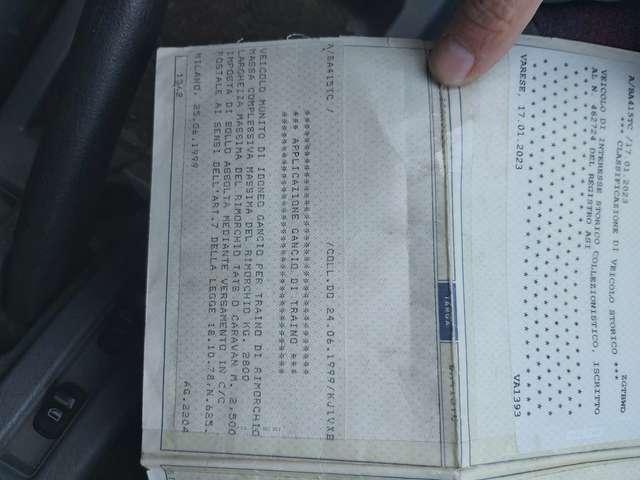 A/BA415TC /17 01.2023 ZGTBWD
** CLASSIFICAZIONE DI VEICOLO STORICO **
VEICOLO DI INTERESSE STORICO COLLEZIONISTICO ISCRITTO
AL N. 462724 DEL REGISTRO ASI
VARESE, 17.01.2023 VA1393
TARGA
A/BA415TC / /COLL.DO 24.06.1999/KJ1VXB
*** APPLICAZIONE GANCIO DI TRAINO ***
VEICOLO MUNITO DI IDONEO GANCIO PER TRAINO DI RIMORCHIO
MASSA COMPLESSIVA MASSIMA DEL RIMORCHIO KG. 2800
LARGHEZZA MASSIMA DEL RIMORCHIO TATS O CARAVAN M. 2,500
IMPOSTA DI BOLLO ASSOLTA MEDIANTE VERSAMENTO IN C/C
POSTALE AI SENSI DELL'ART.7 DELLA LEGGE 18.10.78,N.625.
MILANO, 25.06.1999 AG.2204